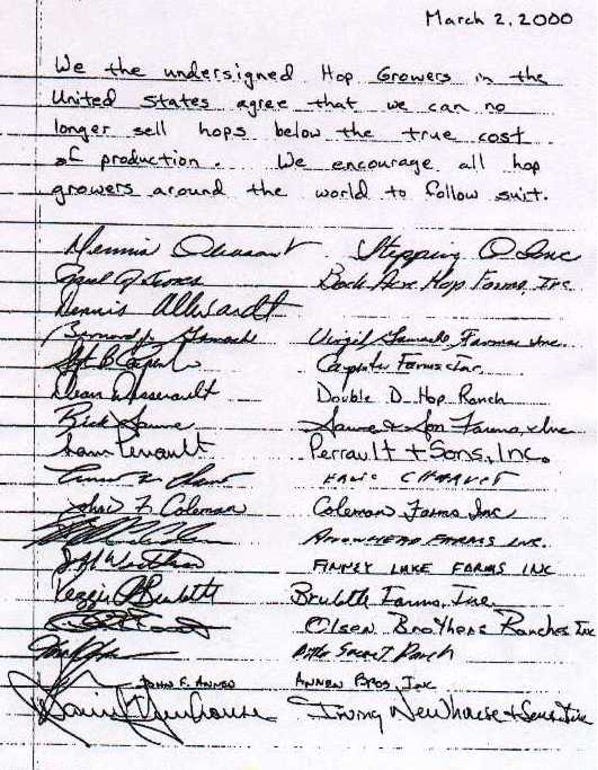 March 2, 2000
We the undersigned Hop Growers in the
United States agree that we can no
longer sell hops below the true cost
of production. We encourage all hop
growers around the world to follow suit.
Dennis Stepping Inc
Jones Back Acre Hop Farms, Inc
Dennis
Bernard Gamache Virgil Gamache Farms Inc.
B Carpenter Farms Inc.
Dean Double D Hop Ranch
Rick & Son Farms, Inc
Perrault Perrault + Sons, Inc.
John F. Coleman Coleman Farms Inc
Arrowhead Farms Inc.
Finney Lake Farms Inc
Reggie Brulotte Brulotte Farms, Inc.
Olsen Brothers Ranches Inc
Ranch
John F. Annen Annen Bros, Inc
Newhouse Irving Newhouse + Sons